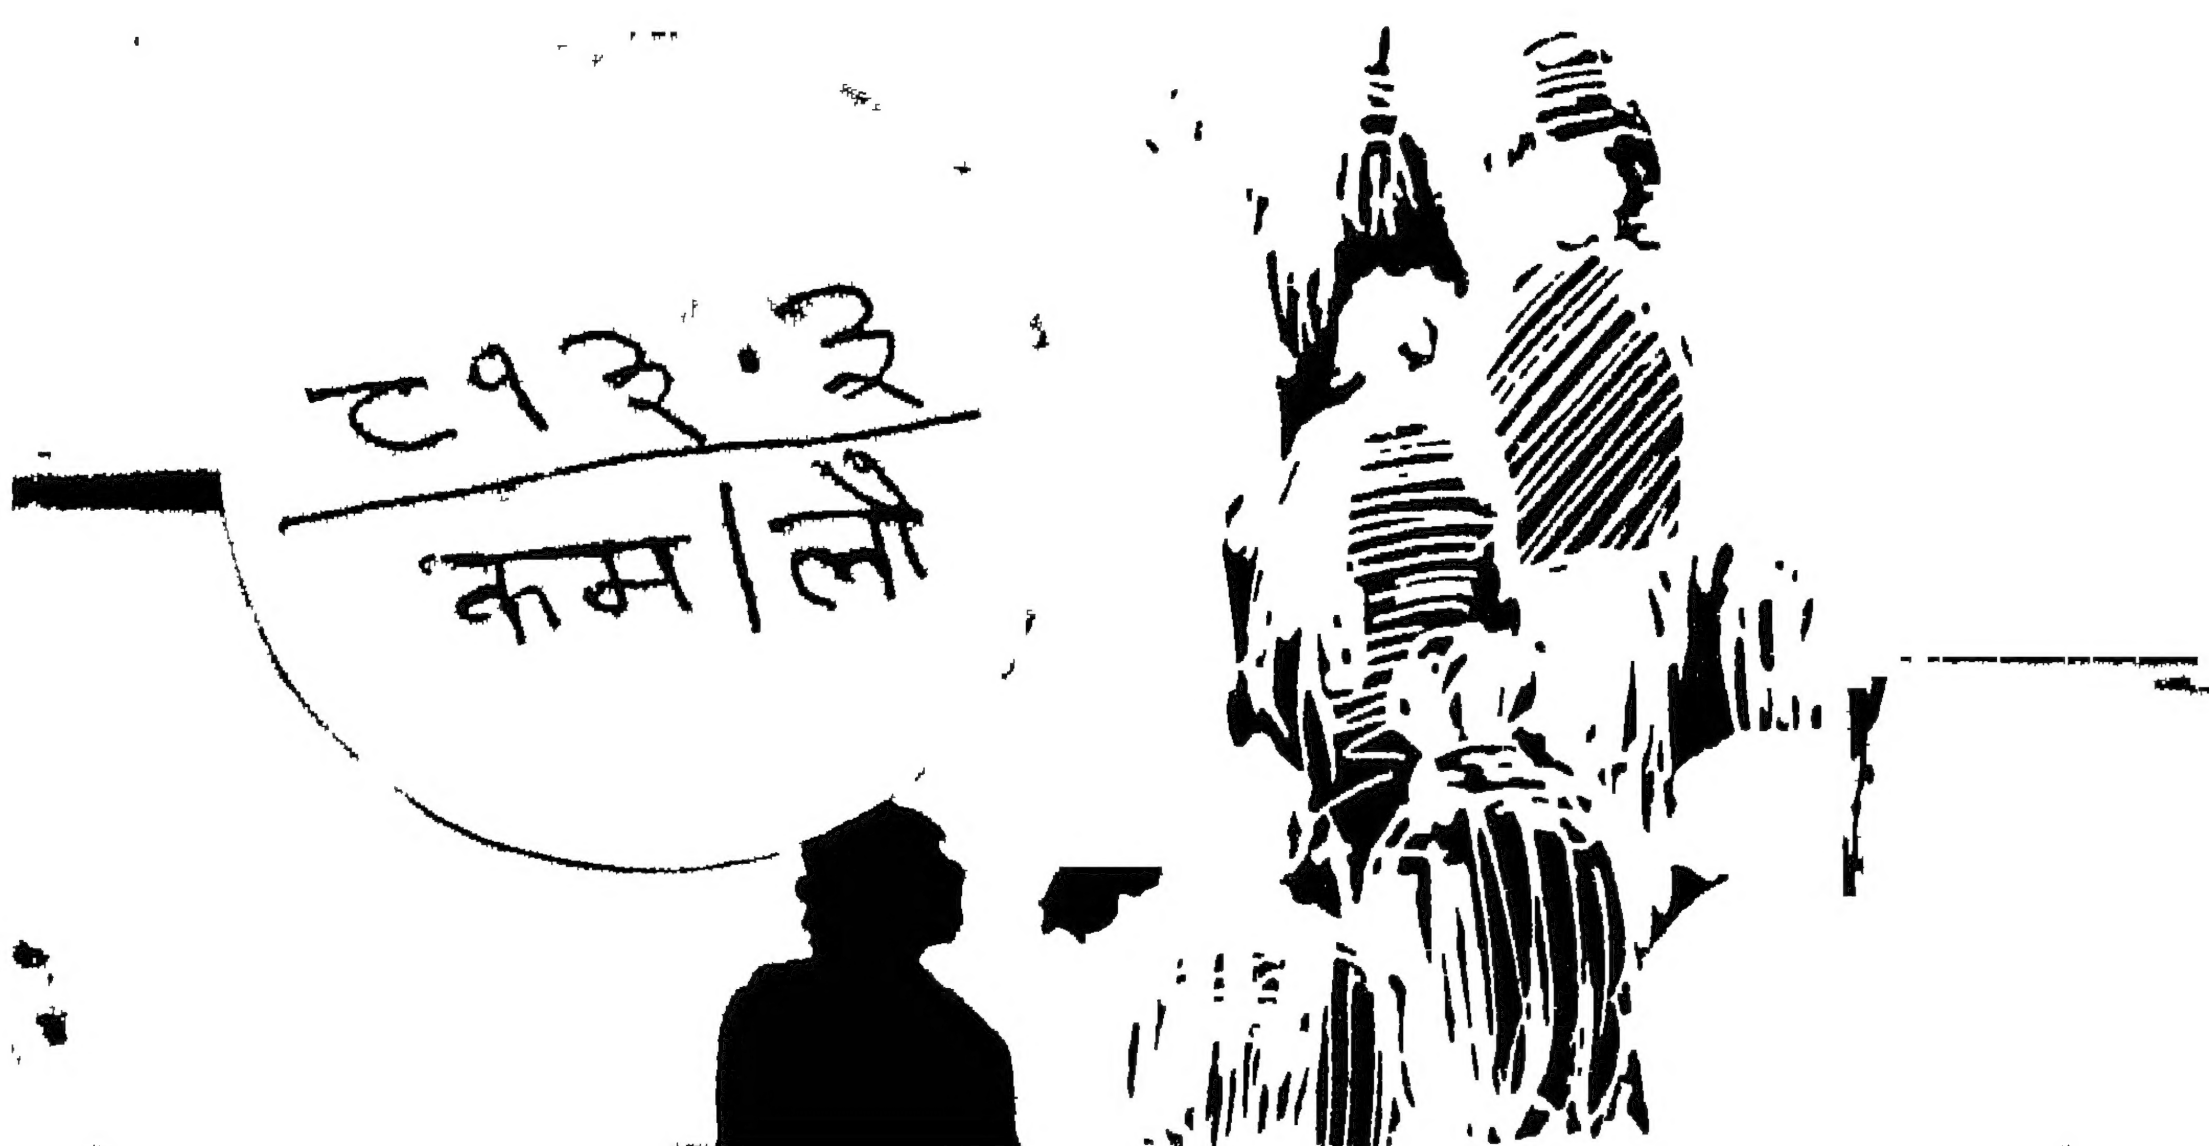 ८१३.३
कम|लौ